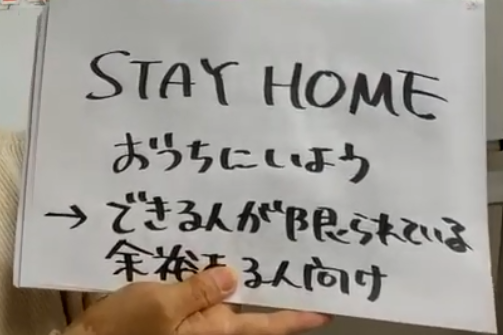 STAY HOME
おうちにいよう
→ できる人が限られている
余裕ある人向け